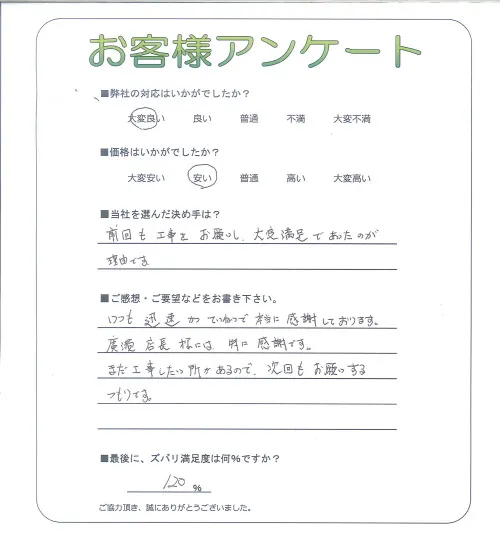 お客様アンケート
■弊社の対応はいかがでしたか？
大変良い 良い 普通 不満 大変不満
■価格はいかがでしたか？
大変安い 安い 普通 高い 大変高い
■当社を選んだ決め手は？
前回も工事をお願いし、大変満足であったのが
理由です。
■ご感想・ご要望などをお書き下さい。
いつも迅速かつていねいで本当に感謝しております。
廣瀧店長様には、特に感謝です。
まだ工事したい所があるので、次回もお願いする
つもりです。
■最後に、ズバリ満足度は何％ですか？
120 ％
ご協力頂き、誠にありがとうございました。